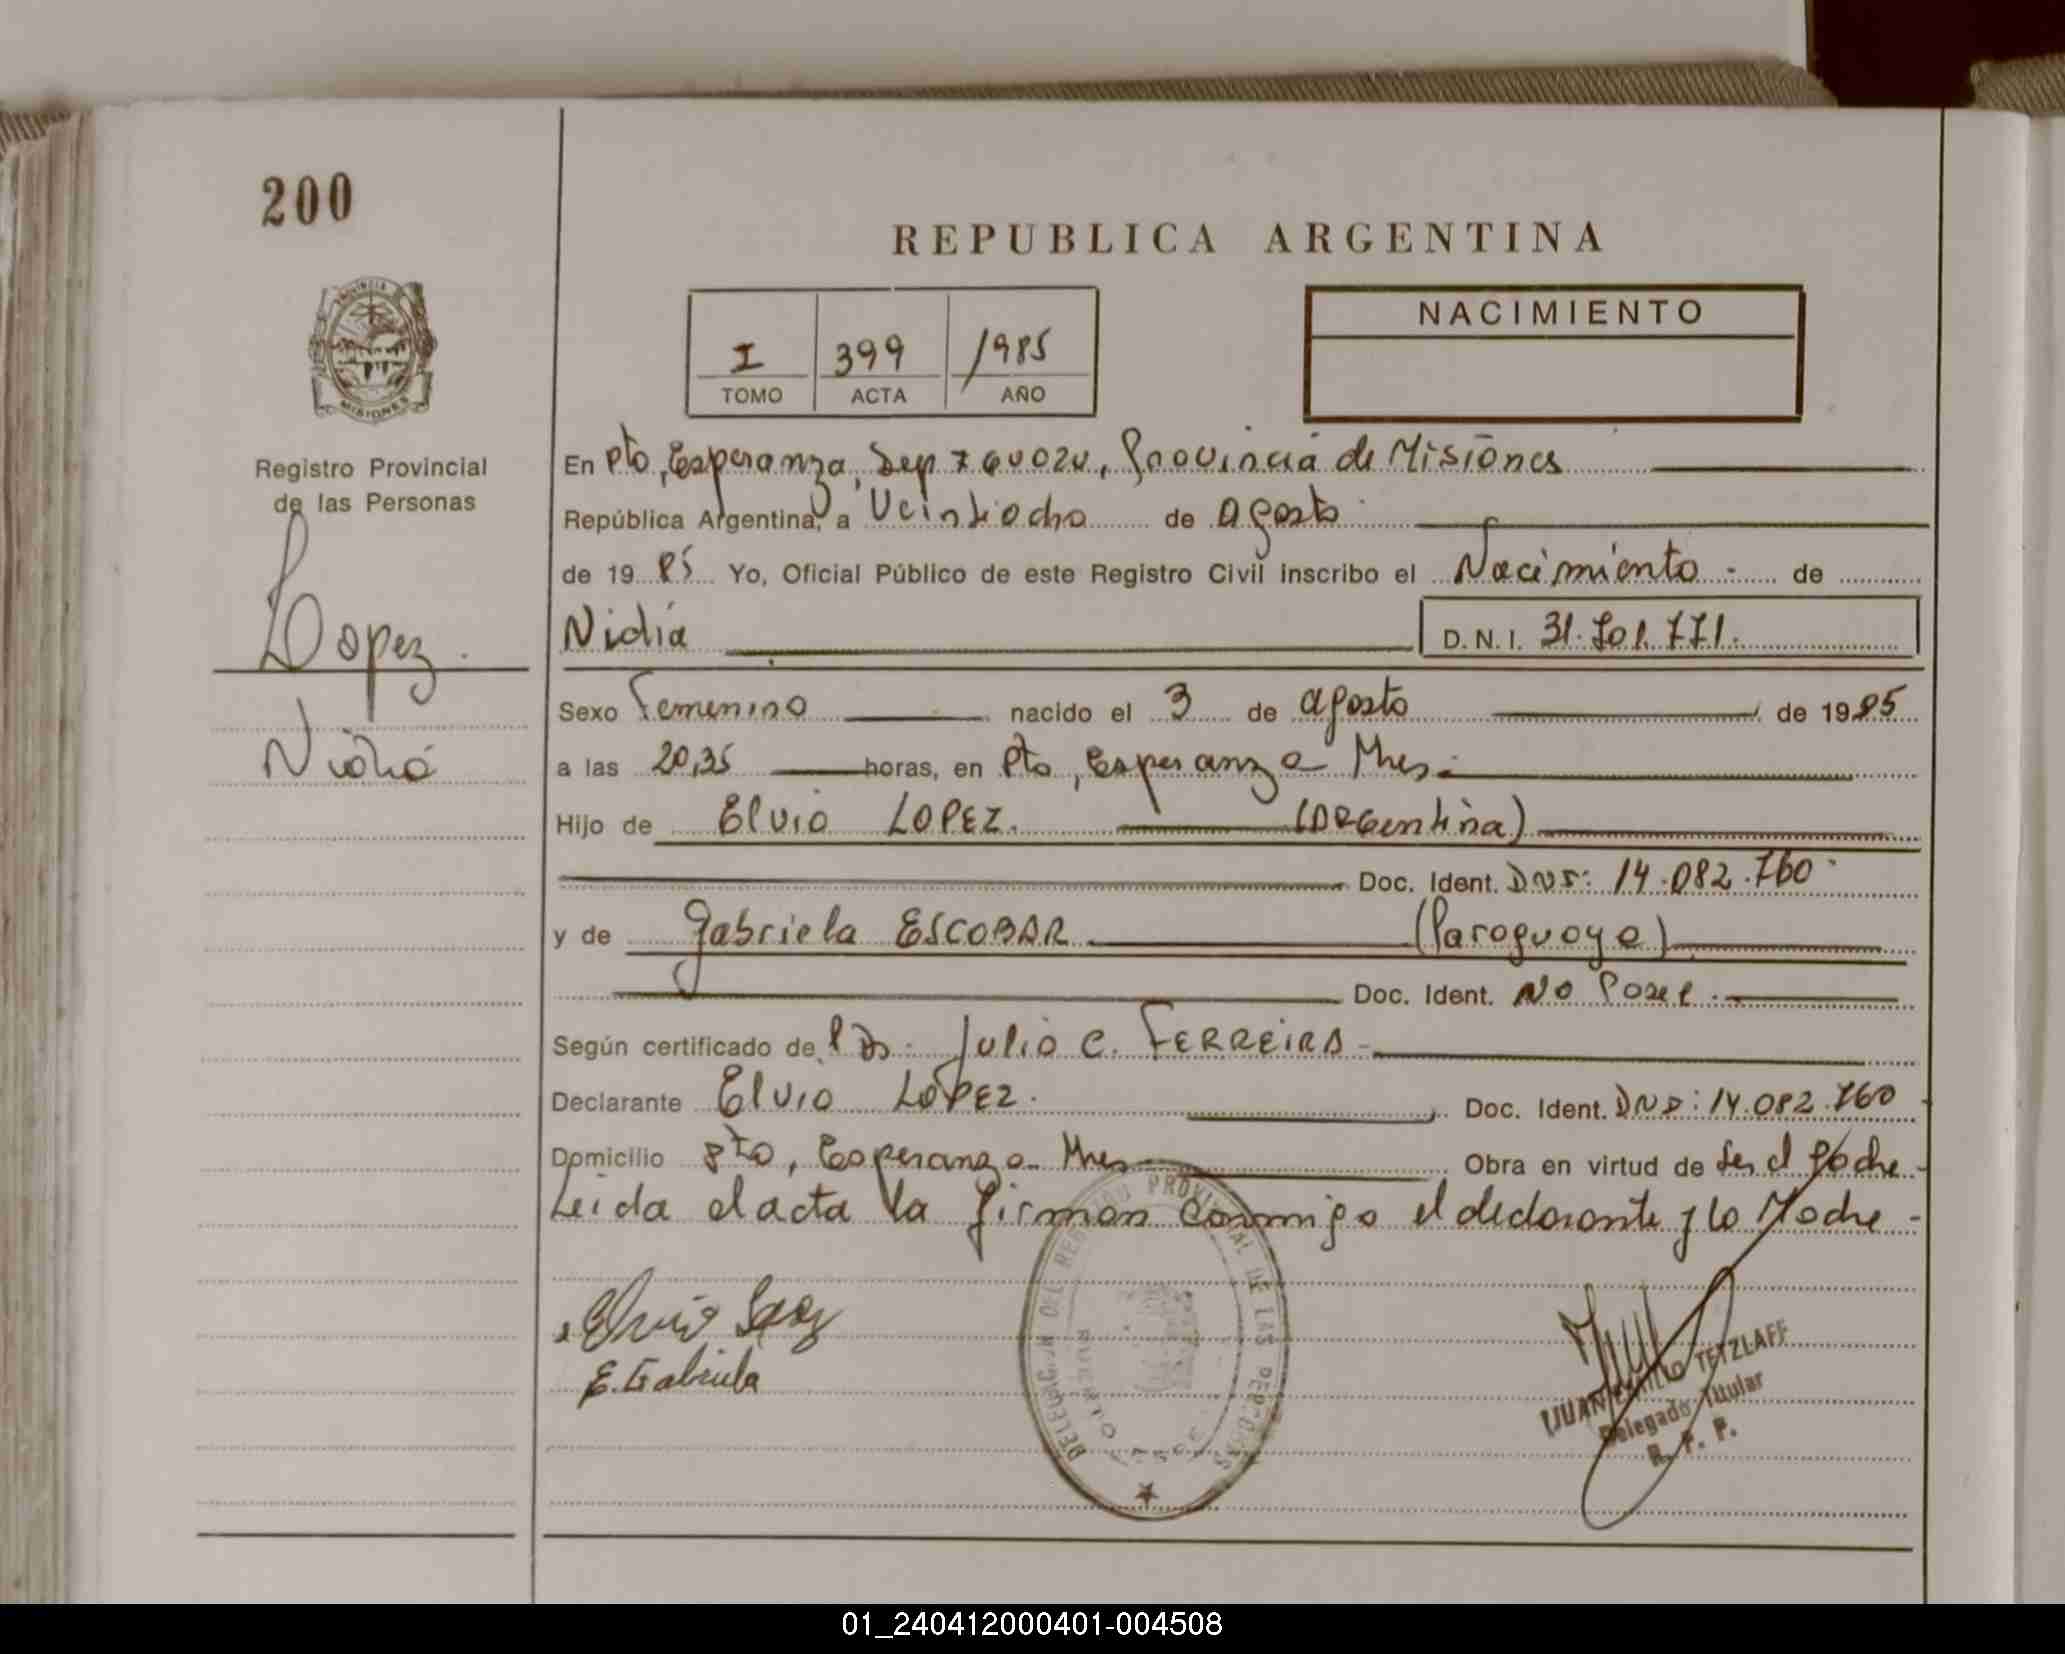 200
REPUBLICA ARGENTINA
I 399 1985
TOMO ACTA AÑO
NACIMIENTO
PROVINCIA
MISIONES
Registro Provincial
de las Personas
Lopez
Nidia
En Pto, Esperanza, Dep Iguazu, Provincia de Misiones
República Argentina, a Veintiocho de agosto
de 1985 Yo, Oficial Público de este Registro Civil inscribo el Nacimiento - de
Nidia D.N.I. 31.701.771.
Sexo Femenino nacido el 3 de agosto de 1985
a las 20,35 horas, en Pto, Esperanza Mnes-
Hijo de Elvio LOPEZ. (Argentina)
Doc. Ident. DNI: 14.082.760
y de Gabriela ESCOBAR (Paraguaya)
Doc. Ident. No Posee.
Según certificado de l Dr. Julio C. FERREIRA-
Declarante Elvio LOPEZ. Doc. Ident. DNI: 14.082.760
Domicilio Pto, Esperanza Mnes Obra en virtud de Ser el Padre-
Leida el acta la firman conmigo el declarante y la Madre-
Elvio Lopez
E. Gabriela
DELEGACION DEL REGISTRO PROVINCIAL DE LAS PERSONAS
JUAN EMILIO TETZLAFF
Delegado Titular
R. P. P.
01_240412000401-004508